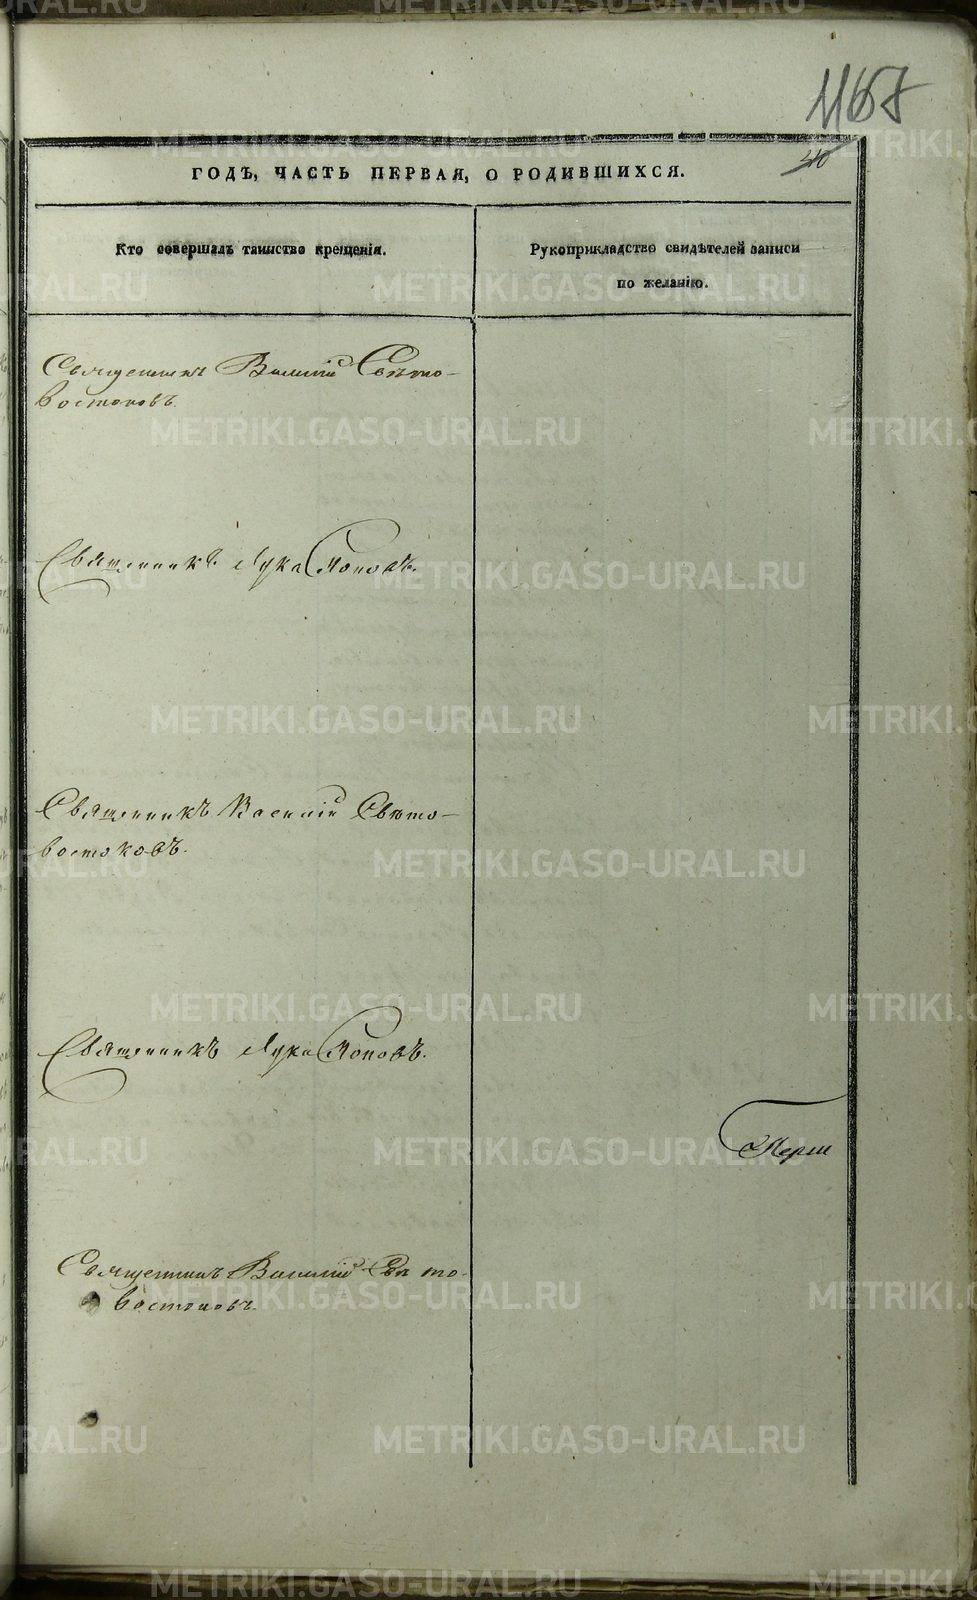 1167
40
ГОДЪ, ЧАСТЬ ПЕРВАЯ, О РОДИВШИХСЯ.
Кто совершалъ таинство крещенія.
Рукоприкладство свидѣтелей записи
по желанію.
Священникъ Василій Свѣто-
востоковъ.
Священникъ Лука Поповъ.
Священникъ Василій Свѣто-
востоковъ.
Священникъ Лука Поповъ.
Священникъ Василій Свѣто-
востоковъ.
METRIKI.GASO-URAL.RU